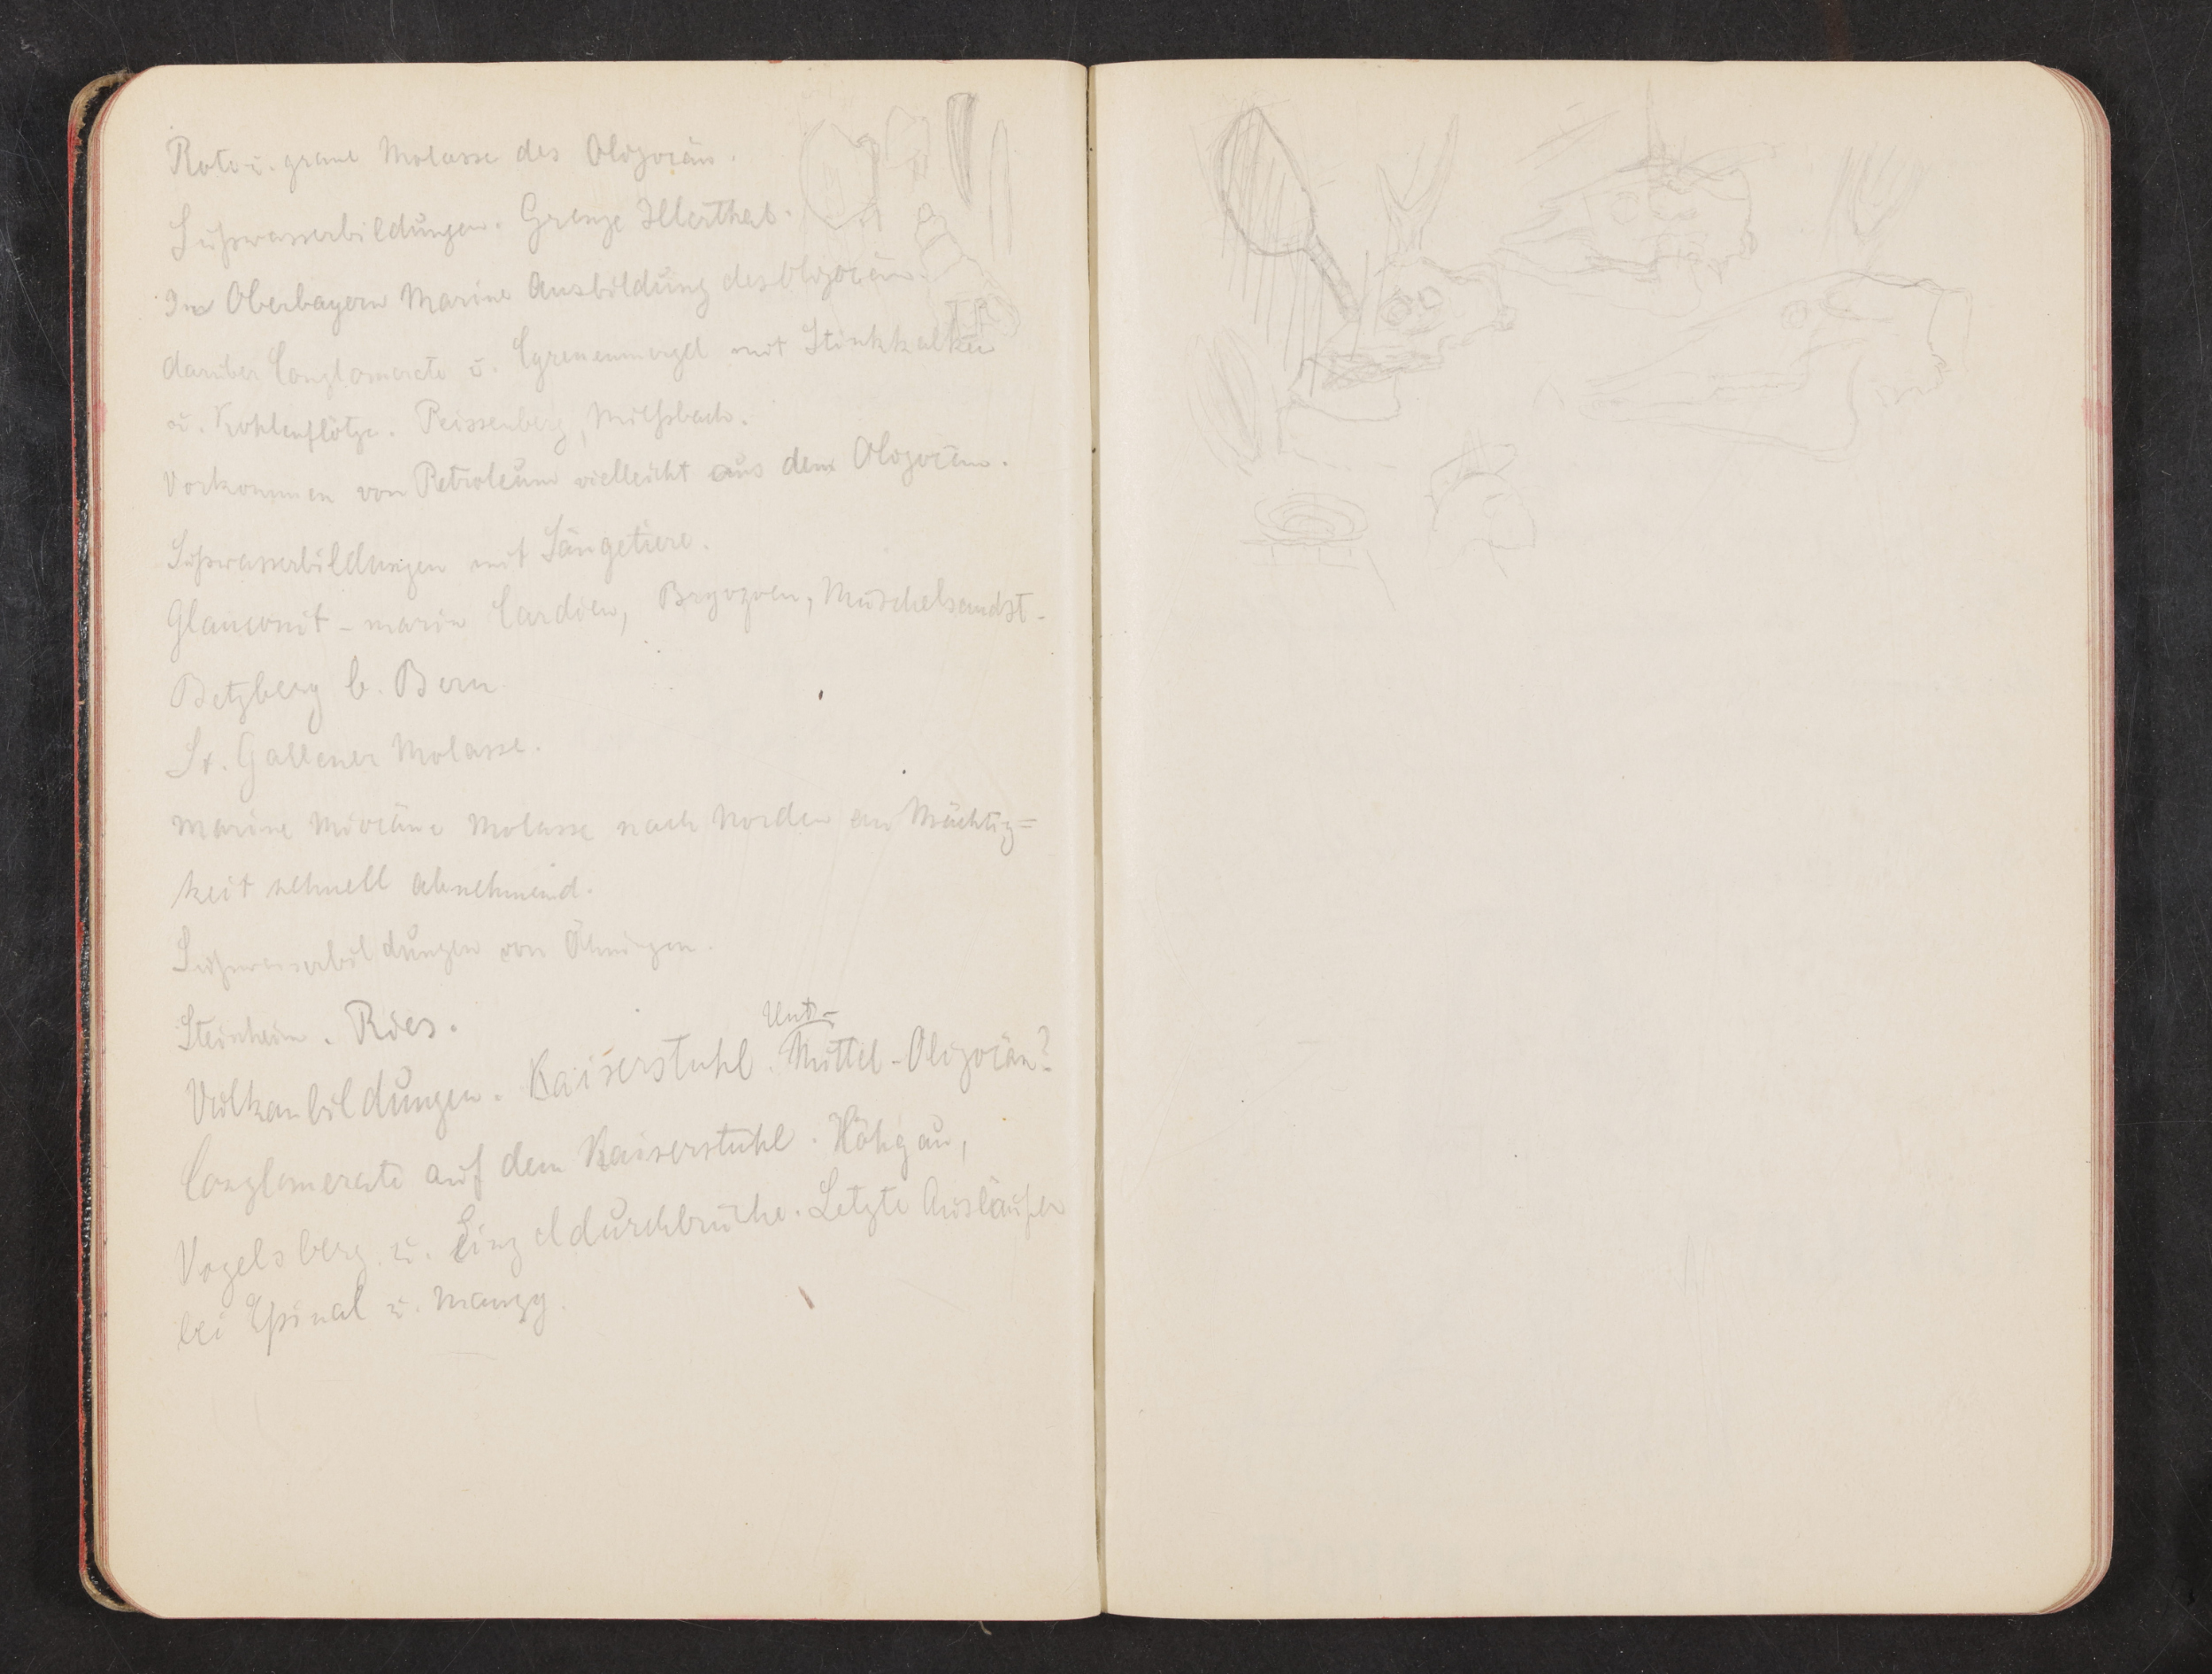 Rote u. graue Molasse des Oligocän.
Süsswasserbildungen. Grenze Illerthal.
In Oberbayern Marine Ausbildung des Oligocän
darüber Conglomerate u. Cyrenenmergel mit Stinkkalken
u. Kohlenflötze. Peissenberg, Miessbach.
Vorkommen von Petroleum vielleicht aus dem Oligocän.
Süsswasserbildungen mit Säugetiere.
Glauconit - marin Cardien, Bryozoen, Muschelsandst-
Betzberg b. Bern
St. Gallener Molasse.
marine Miocäne Molasse nach Norden an Mächtig=
keit schnell abnehmend.
Süsswasserbildungen von Öhningen.
Steinheim. Ries.
Unt-
Vulkanbildungen. Kaiserstuhl. Mittel-Oligocän?
Conglomerate auf dem Kaiserstuhl. Höhgau,
Vogelsberg. u. Einzeldurchbrüche. Letzte Ausläufer
bei Epinal u. Nancy.